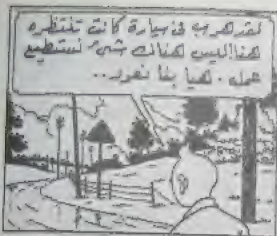 لقد هرب في سيارة كانت تنتظره
هنا! ليس هنالك شيء نستطيع
عمله . هيا بنا نعود ..